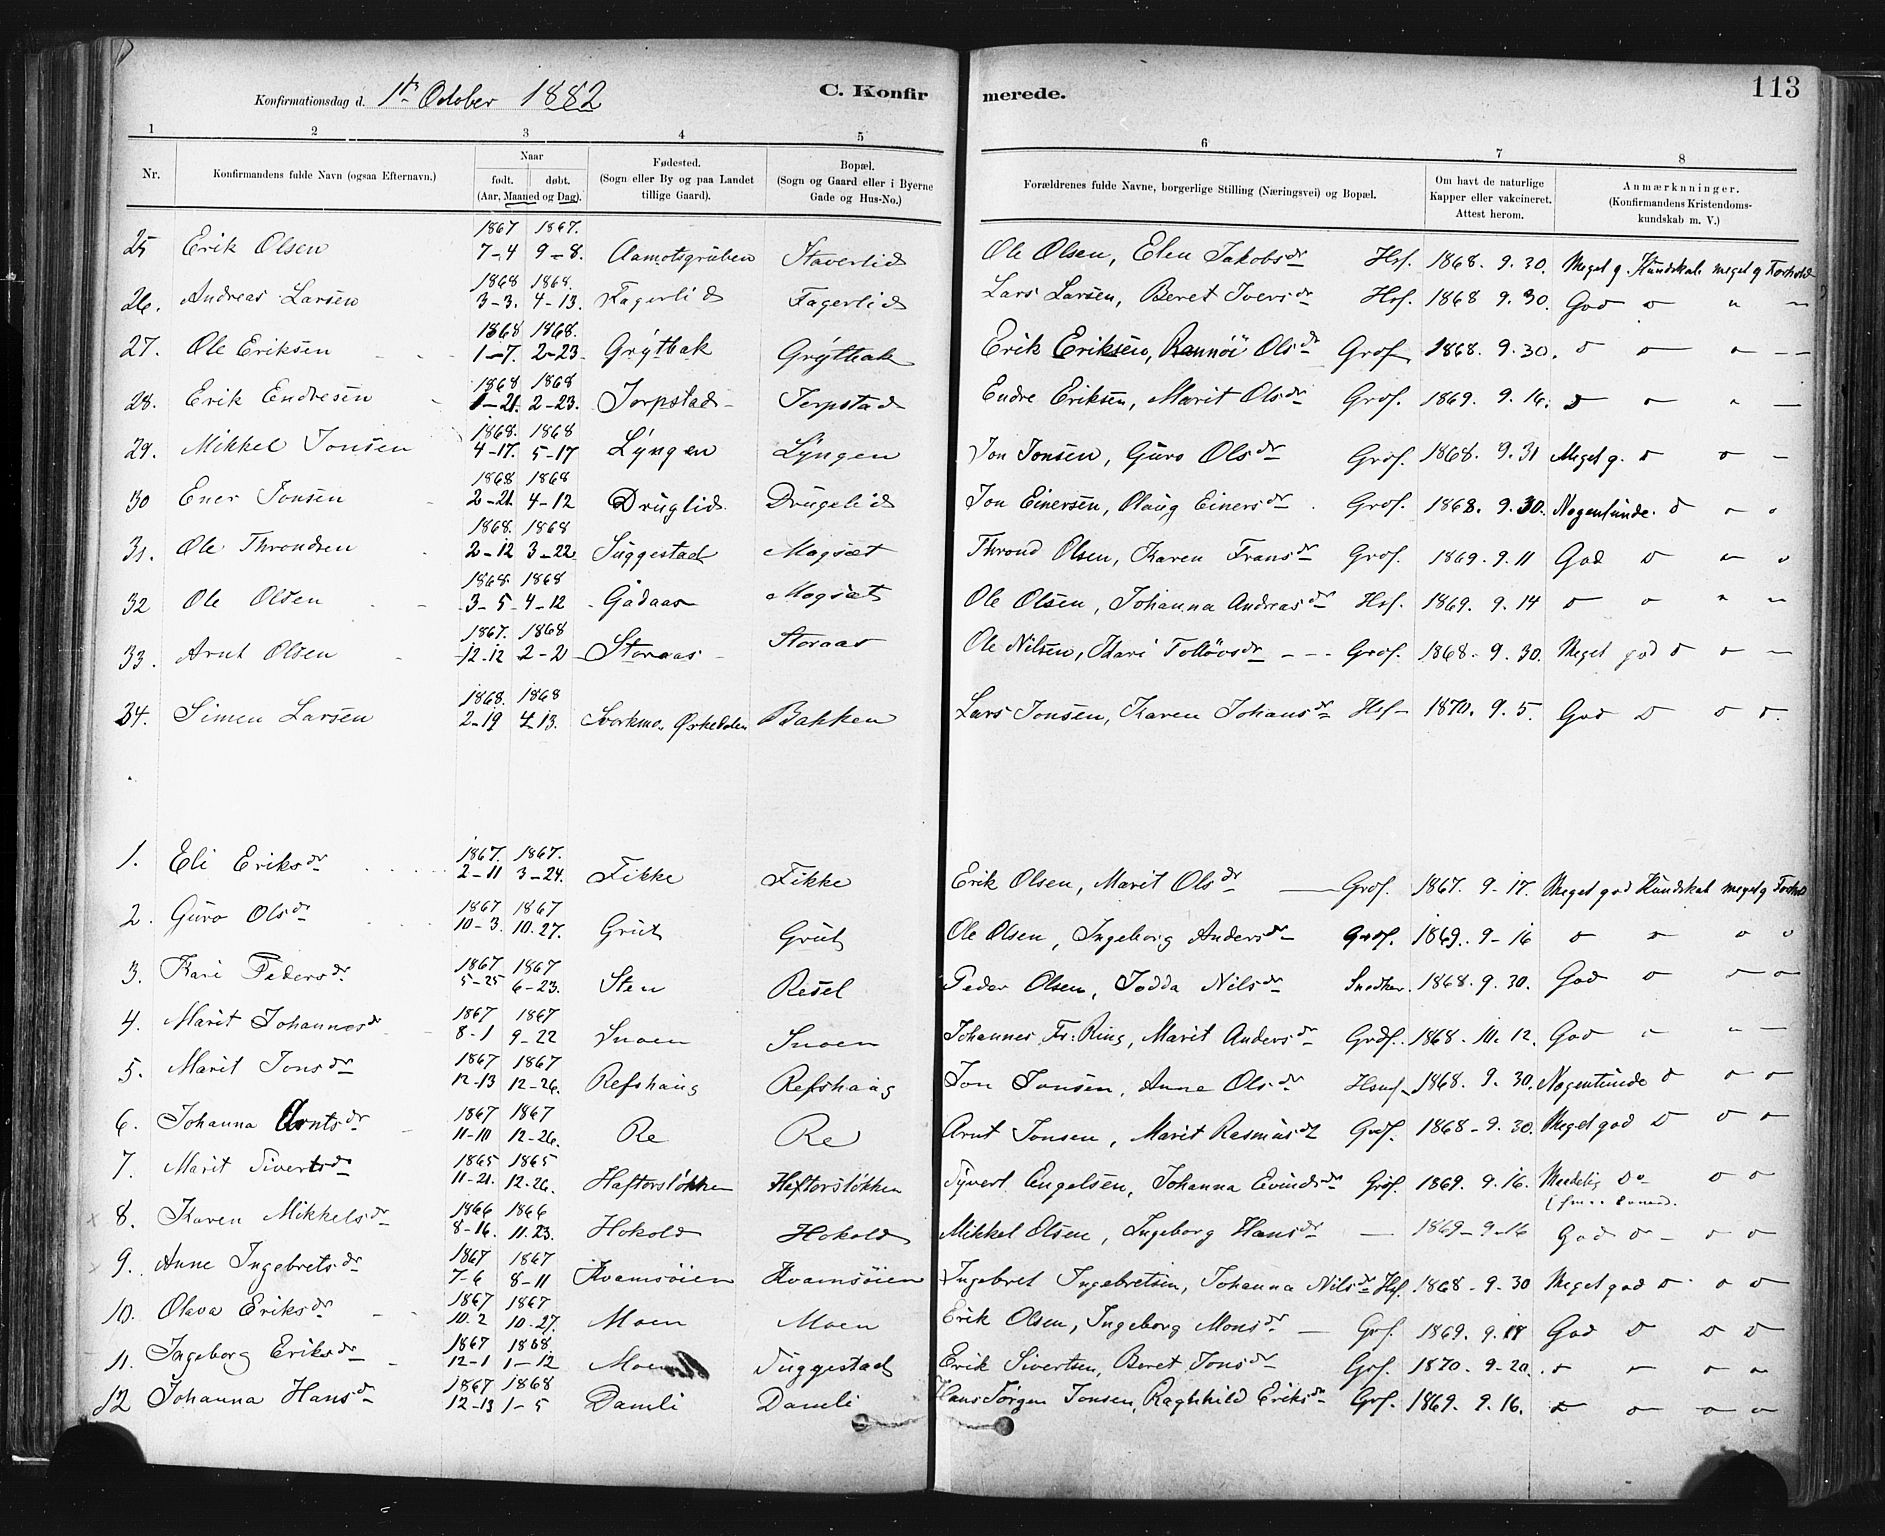 113
Konfirmationsdag d. 1ste October 1882 C. Konfirmerede.
1 2 3 4 5 6 7 8
Nr. Konfirmandens fulde Navn (ogsaa Efternavn.) Naar født. døbt. (Aar, Maaned og Dag). Fødested. (Sogn eller By og paa Landet tillige Gaard). Bopæl. (Sogn og Gaard eller i Byerne Gade og Hus-No.) Forældrenes fulde Navne, borgerlige Stilling (Næringsvei) og Bopæl. Om havt de naturlige Kapper eller vakcineret. Attest herom. Anmærkninger. (Konfirmandens Kristendomskundskab m. V.)
25 Erik Olsen 1867 7-4 1867. 9-8. Aamotsgruben Staverlid Ole Olsen, Elen Jakobsdr Hsf. 1868. 9. 30. Meget g. Kundskab meget g Forhold
26. Andreas Larsen 1868 3-3. 1868. 4-13. Fagerlid Fagerlid Lars Larsen, Beret Iversdr Hsf. 1868 9. 30. God o " -
27. Ole Eriksen 1868 1-7. 1868. 2-23. Grytbak Grytbak Erik Eriksen, Rannöi Olsdr Grdf. 1868. 9. 30. o o - - -
28. Erik Endresen 1868 1-21. 1868 2-23. Jerpstad Jerpstad Endre Eriksen, Marit Olsdr Grdf. 1869. 9. 16. o o " -
29. Mikkel Jonsen 1868. 4-17. 1868 5-17 Lyngen Lyngen Jon Jonsen, Guro Olsdr Grdf. 1868. 9. 31 Meget g. o o -
30 Ener Jonsen 1868 2-21. 1868 4-12 Druglid Drugelid Jon Einersen, Olaug Einersdr Grdf. 1868. 9. 30. Nogenlunde. o - o
31. Ole Throndsen 1868. 2-12 1868 3-22 Suggestad Mogsæt Thrond Olsen, Karen Fransdr Grdf. 1869. 9. 11 God o - o
32 Ole Olsen 1868. 3-5 1868 4-12 Gådaas Mogsæt Ole Olsen, Johanna Andreasdr Hsf. 1869. 9. 14 o o " -
33. Arnt Olsen 1867. 12-12 1868 2-2 Storaas Storaas Ole Nilsen, Kari Tollövsdr Grdf. 1868. 9. 30. Meget god o o -
34. Simen Larsen 1868. 2-19 1868 4-13. Svorkmo. Ørkedalen Bakken Lars Jonsen, Karen Johansdr Hsf 1870. 9. 5. God o o o.
1. Eli Eriksdr 1867. 2-11 1867. 3-24. Fikke Fikke Erik Olsen, Marit Olsdr Grdf. 1867. 9. 17. Meget god Kundskab meget g Forhold
2. Guro Olsdr 1867 10-3. 1867 10-27. Grut Grut Ole Olsen, Ingeborg Andersdr Grdf. 1869. 9-16 o o o o
3. Kari Pedersdr 1867 5-25 1867 6-23. Sten Resel Peder Olsen, Jodda Nilsdr Snedker. 1868. 9. 30. God o - o
4. Marit Johannesdr 1867 8-1 1867 9-22 Snoen Snoen Johannes Fr. Ring, Marit Andersdr Grdf. 1868. 10. 12. God - " -
5. Marit Jonsdr 1867 12-13 1867 12-26. Refshaug Refshaug Jon Jonsen, Anne Olsdr Hsmf. 1868. 9. 30. Nogenlunde o - o
6. Johanna Arntsdr 1867 11-10 1867 12-26. Re Re Arnt Jonsen, Marit Rasmusdr Grdf. 1868-9. 30. Meget god o o o
7. Marit Sivertsdr 1865 11-21. 1865 12-26. Haftorsløkken Haftorsløkken Syvert Engelsen, Johanna Evindsdr Grdf. 1869. 9. 16. Maadelig Do o o
x 8. Karen Mikkelsdr 1866 8-16. 1866 11.23. Hokold Hokold Mikkel Olsen, Ingeborg Hansdr — 1869-9-16 God o - o o
x 9. Anne Ingebretsdr 1867 7-6 1867 8-11 Kvamsöien Kvamsöien Ingebret Ingebretsen, Johanna Nilsdr Hsf. 1868-9. 30 Meget god o o o
10. Olava Eriksdr 1867 10.2 1867 10-27. Moen Moen Erik Olsen, Ingeborg Monsdr. Grf. 1869. 9. God o o o
11. Ingeborg Eriksdr 1867 12-1 1868. 1-12 Moen Suggestad Erik Sivertsen, Beret Jonsdr Grf. 1870. 9-20. o - o -
12 Johanna Hansdr 1867 12-13 1868 1-5 Damli Damli Hans Jörgen Jonsen, Raghhild Eriksdr Grf. 1869. 9. 16. o o o o